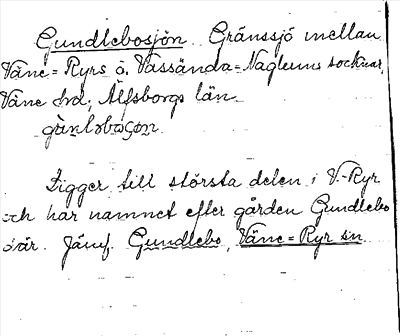 Gundlebosjön Gränssjö mellan
Väne-Ryrs o. Vassända-Naglums socknar,
Väne hd, Älfsborgs län
Ligger till största delen i V.-Ryr
och har namnet efter gården Gundlebo
där. Jämf. Gundlebo, Väne-Ryr sn